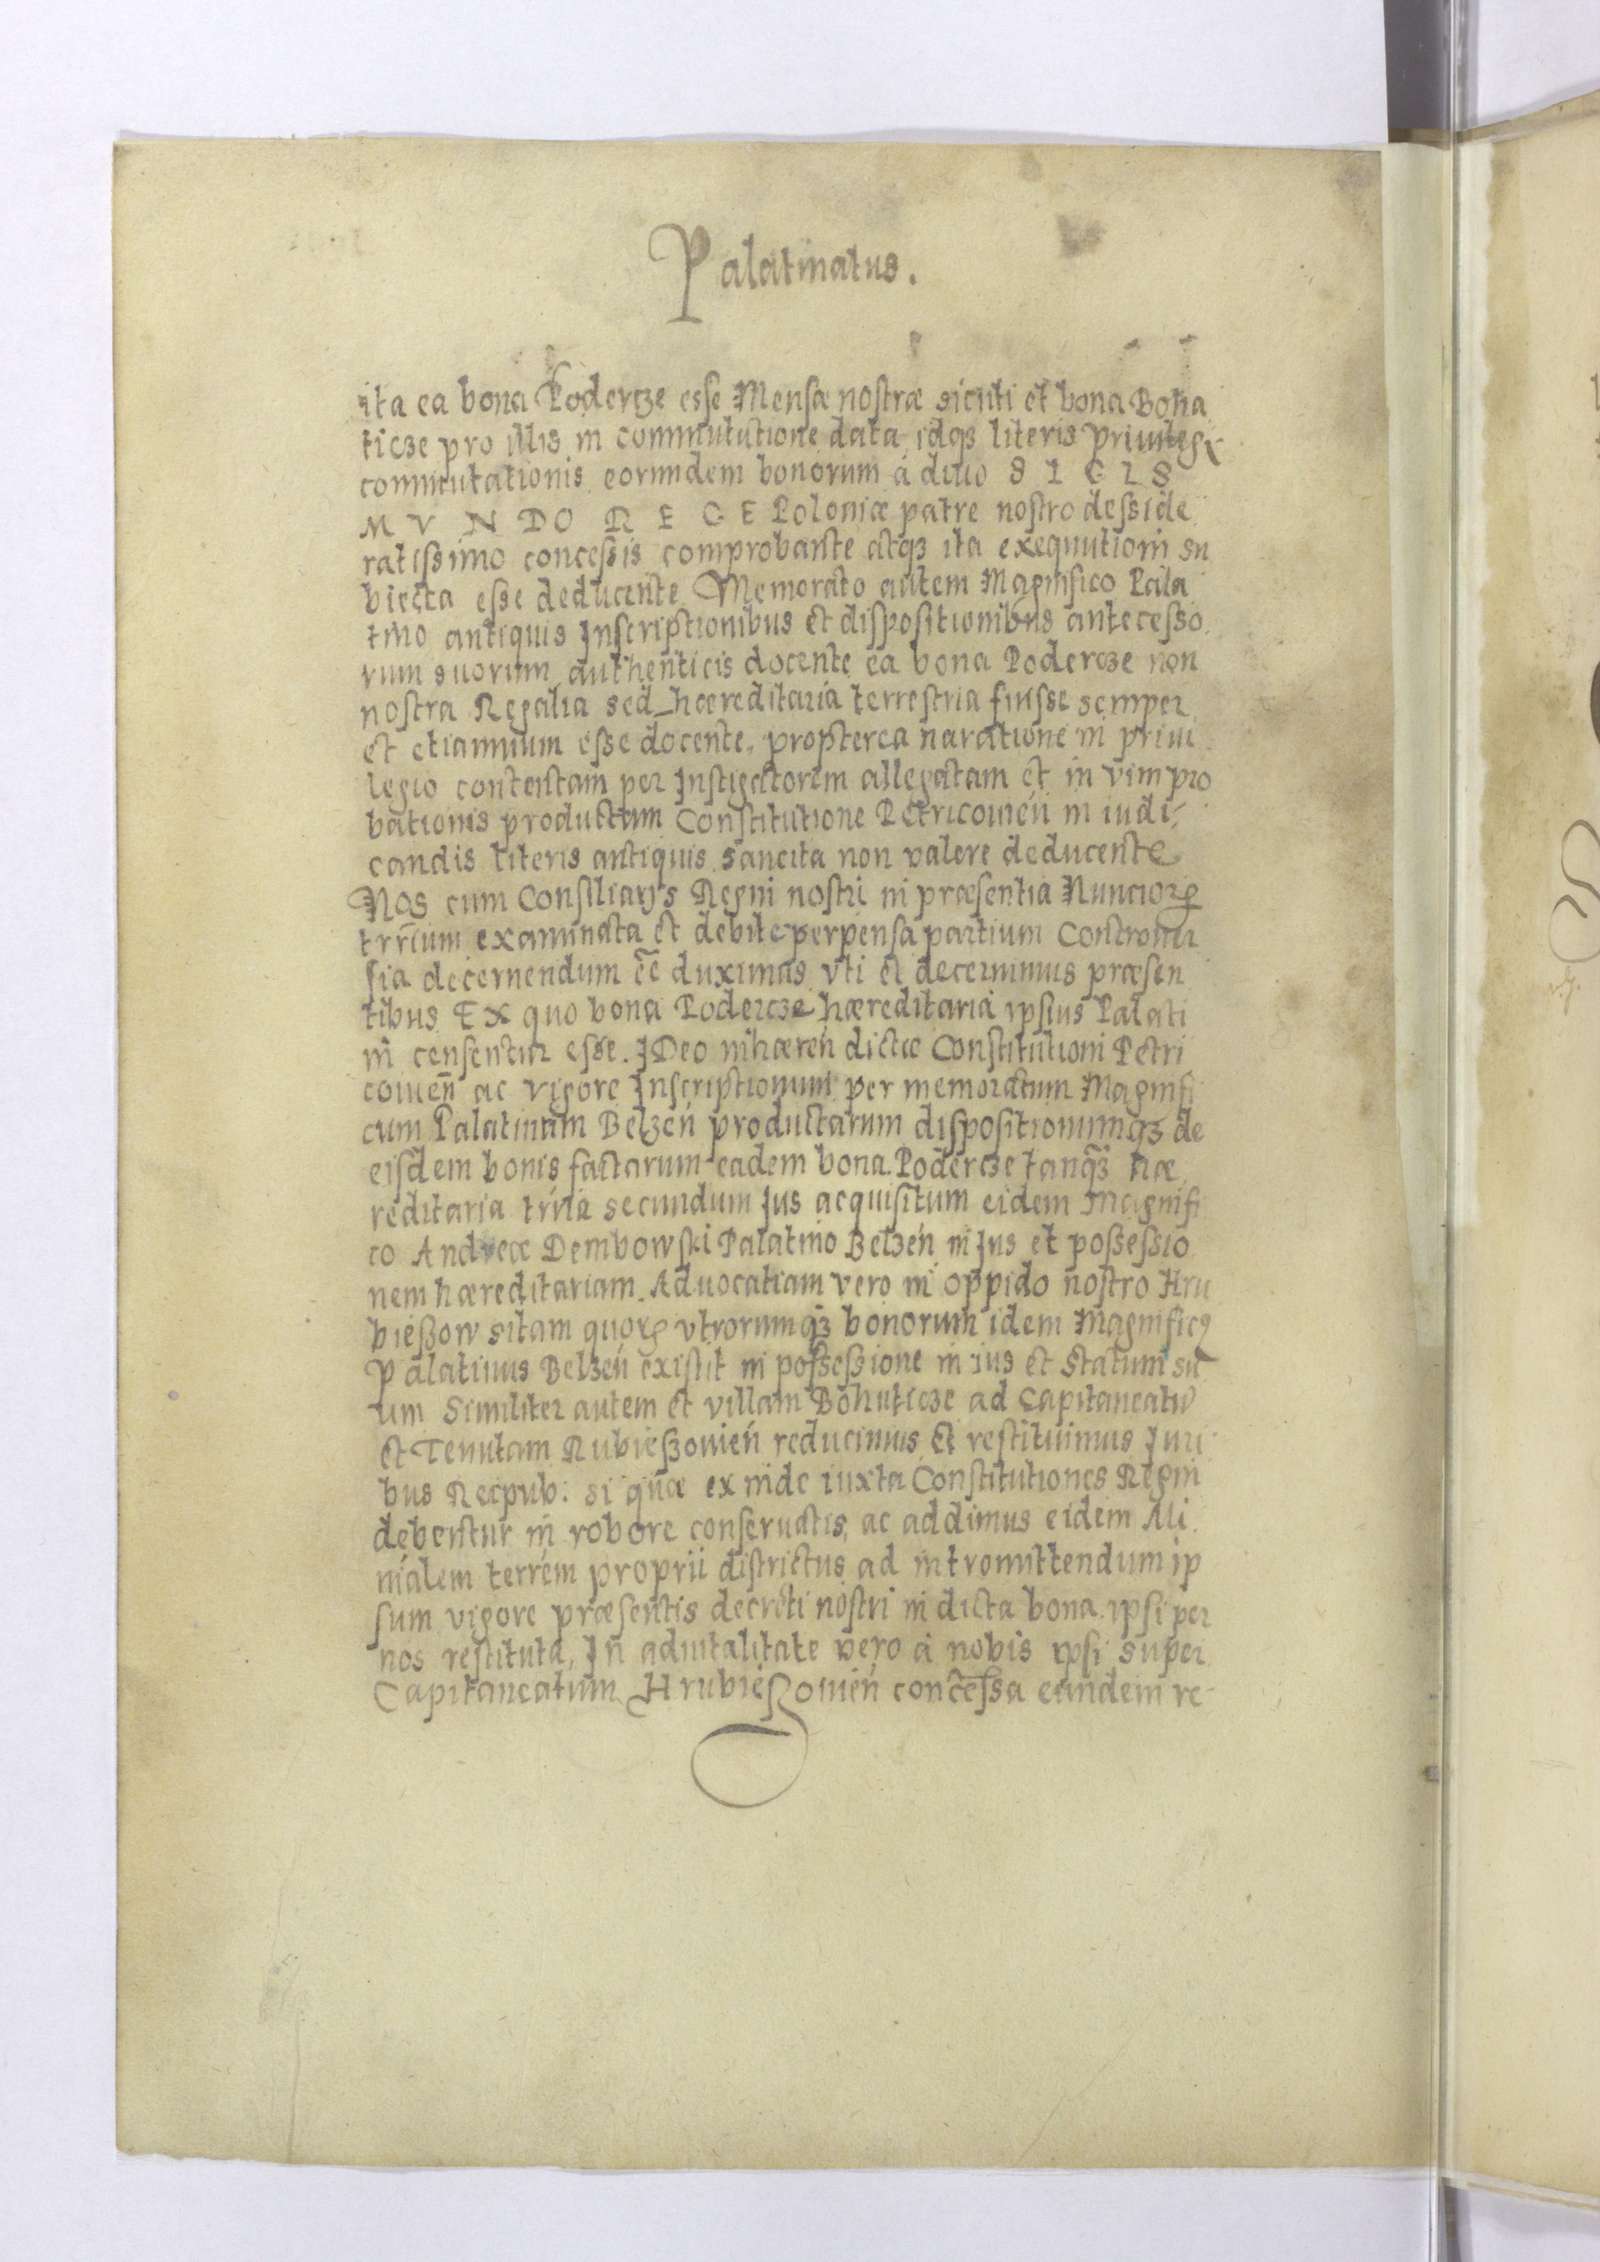 Palatinatus.
ita ea bona Podercze esse Mensæ nostræ sicuti et bona Bohu
ticze pro illis in commutatione data, idq3 literis priuilegy
commutationis eorundem bonorum à diuo S I G I S
M V N D O R E G E Poloniæ patre nostro desside
ratissimo concessis comprobante atq3 ita exequutioni su
biecta esse deducente Memorato autem Magnifico Pala
tino antiquis Inscriptionibus et dispositionibus antecesso
rum suorum authenticis docente ea bona Podercze non
nostra Regalia sed hæreditaria terrestria fuisse semper
et etiamnum esse docente, propterea naratione in priui
legio contentam per Instigatorem allegatam et in vim pro
bationis productam Constitutione Petricouień in iudi
candis literis antiquis sancita non valere deducente
Nos cum Consiliarys Regni nostri in præsentia Nuncioꝝ
trrium examinata et debite perpensa partium Controuer
sia decernendum eē duximus vti et decernimus præsen
tibus Ex quo bona Podercze hæreditaria ipsius Palati
ni censentur esse. IDeo inhæreń dictæ Constitutioni Petri
couień ac vigore Inscriptionum per memoratum Magnifi
cum Palatinum Belzeń productarum dispositionumq3 de
eisdem bonis factarum eadem bona Podercze tanq3 hæ
reditaria trria secundum Jus acquisitum eidem Magnifi
co Andreæ Dembowski Palatino Belzeń in Jus et possessio
nem hæreditariam. Aduocatiam vero in oppido nostro Hru
bieszow sitam quoꝝ vtrorumq3 bonorum idem Magnificꝰ
Palatinus Belzeń existit in possessione in ius et statum su
um Similiter autem et villam Bohuticze ad Capitaneatū
et Tenutam Rubieszowień reducimus et restituimus Juri
bus Reipub: si quæ ex inde iuxta Constitutiones Regni
debentur in robore conseruatis, ac addimus eidem Mi
nialem terrem proprii districtus ad intromittendum ip
sum vigore præsentis decreti nostri in dicta bona ipsi per
nos restituta, In aduitalitate vero à nobis ipsi super
Capitaneatum Hrubieszouień concessa eundem re